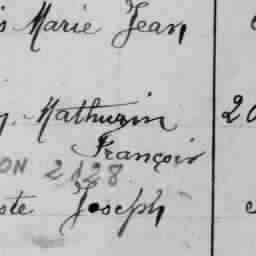 s Marie Jean
Mathurin 20
François
ON 2128
ste Joseph